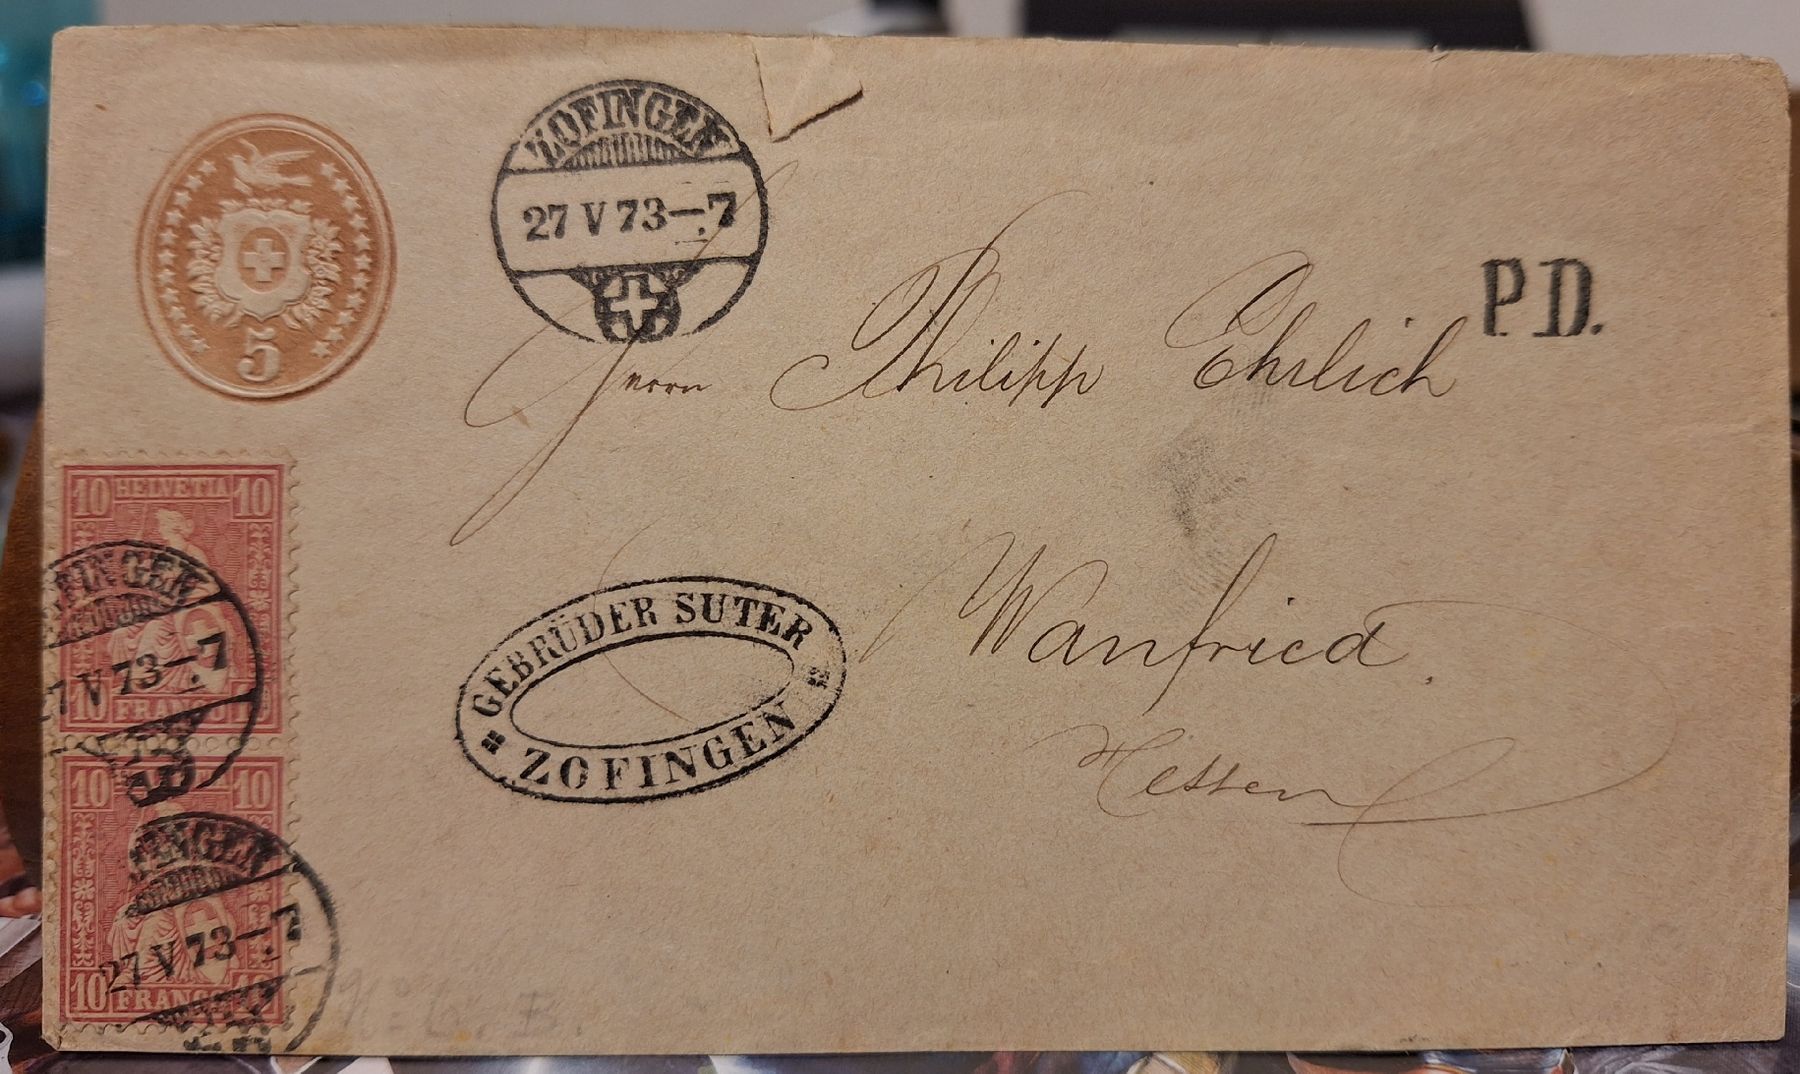 ZOFINGEN
27 V 73—.7
5
P.D.
Herrn Philipp Ehrlich
10 HELVETIA 10
ZOFINGEN
27 V 73—.7
10 FRANCO 10
GEBRÜDER SUTER
ZOFINGEN
Wanfried.
Hessen
10 10
27 V 73—.7
10 FRANCO 10